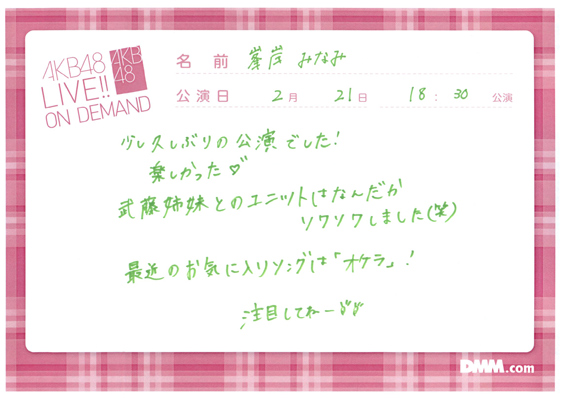 AKB48
LIVE!!
ON DEMAND
AKB
48
名 前 峯岸 みなみ
公演日 2月 21日 18:30 公演
少し久しぶりの公演でした!
楽しかった♡
武藤姉妹とのユニットはなんだか
ソワソワしました(笑)
最近のお気に入りソングは「オケラ」!
注目してねー♡♡
DMM.com